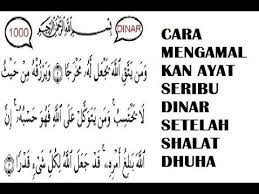 1000
بِسْمِ اللَّهِ الرَّحْمَٰنِ الرَّحِيمِ
DINAR
وَمَن يَتَّقِ اللَّهَ يَجْعَل لَّهُ مَخْرَجًا ۝ وَيَرْزُقْهُ مِنْ حَيْثُ
لَا يَحْتَسِبُ ۚ وَمَن يَتَوَكَّلْ عَلَى اللَّهِ فَهُوَ حَسْبُهُ ۚ إِنَّ
اللَّهَ بَالِغُ أَمْرِهِ ۚ قَدْ جَعَلَ اللَّهُ لِكُلِّ شَيْءٍ قَدْرًا ۝
CARA
MENGAMAL
KAN AYAT
SERIBU
DINAR
SETELAH
SHALAT
DHUHA